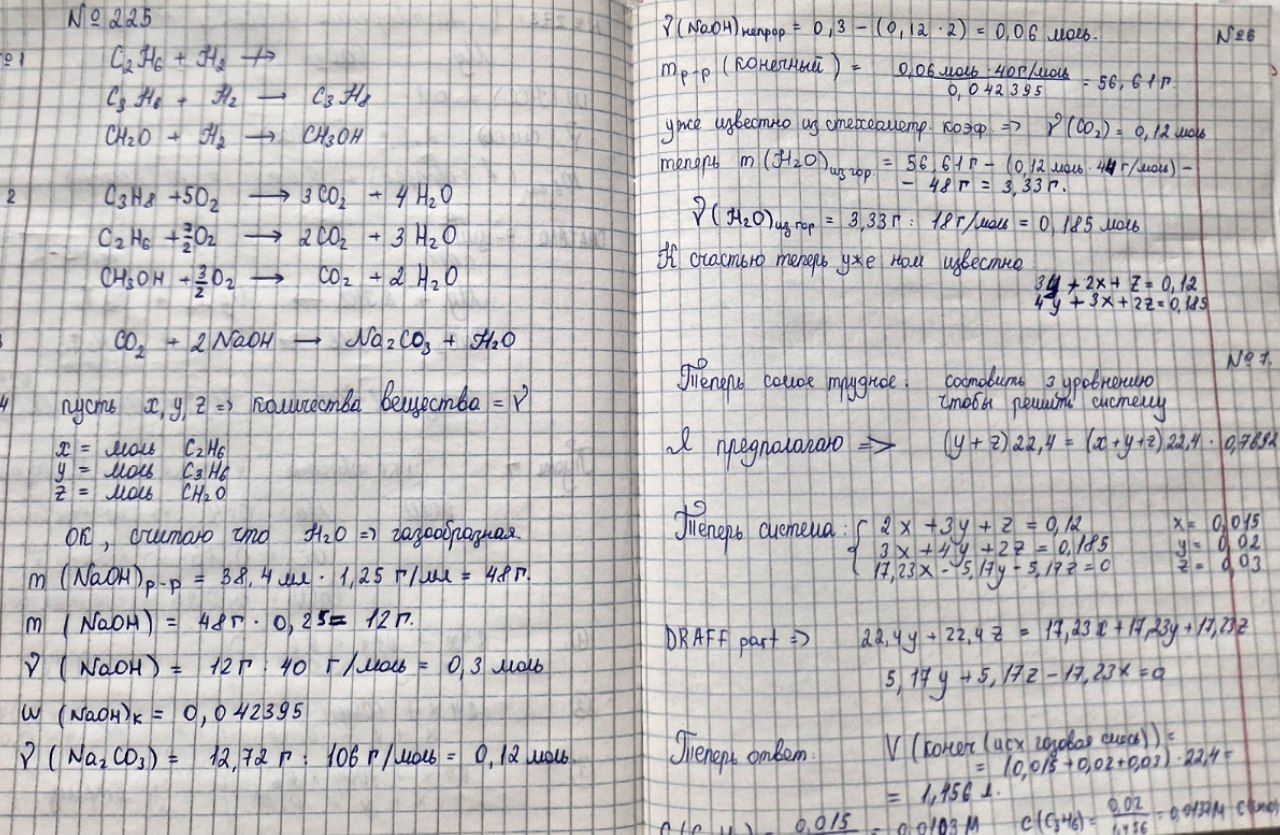 № 225
№1 C₂H₆ + H₂ ↛
C₃H₆ + H₂ → C₃H₈
CH₂O + H₂ → CH₃OH
2 C₃H₈ + 5O₂ → 3CO₂ + 4H₂O
C₂H₆ + 7/2 O₂ → 2CO₂ + 3H₂O
CH₃OH + 3/2 O₂ → CO₂ + 2H₂O
CO₂ + 2NaOH → Na₂CO₃ + H₂O
4 пусть x, y, z => количества вещества = ν
x = моль C₂H₆
y = моль C₃H₆
z = моль CH₂O
ОК, считаю что H₂O => газообразная
m (NaOH)р-р = 38,4 мл · 1,25 г/мл = 48г.
m (NaOH) = 48г · 0,25 = 12г.
ν (NaOH) = 12г : 40 г/моль = 0,3 моль
w (NaOH)к = 0,042395
ν (Na₂CO₃) = 12,72г : 106 г/моль = 0,12 моль.
ν (NaOH)непрор = 0,3 − (0,12 · 2) = 0,06 моль.
№6
mр-р (конечный) = 0,06 моль · 40г/моль / 0,042395 = 56,61г.
уже известно из стехеометр. коэф. => ν (CO₂) = 0,12 моль
теперь m (H₂O)из гор = 56,61г − (0,12 моль · 44 г/моль) −
− 48г = 3,33г.
ν (H₂O)из гор = 3,33г : 18г/моль = 0,185 моль
К счастью теперь уже нам известно
3y + 2x + z = 0,12
4y + 3x + 2z = 0,185
№7.
Теперь самое трудное: составить 3 уравнению
чтобы решить систему
Я предполагаю => (y + z) 22,4 = (x+y+z) 22,4 · 0,7692
Теперь система: { 2x + 3y + z = 0,12 x = 0,015
3x + 4y + 2z = 0,185 y = 0,02
17,23x − 5,17y − 5,17z = 0 z = 0,03
DRAFF part => 22,4y + 22,4z = 17,23x + 17,23y + 17,23z
5,17y + 5,17z − 17,23x = 0
Теперь ответ: V (конеч (исх газовая смесь)) =
= (0,015 + 0,02 + 0,03) · 22,4 =
= 1,456 л.
0,015 = 0,0103 M C(C₃H₆) = 0,02 / 1,456 = 0,0137M